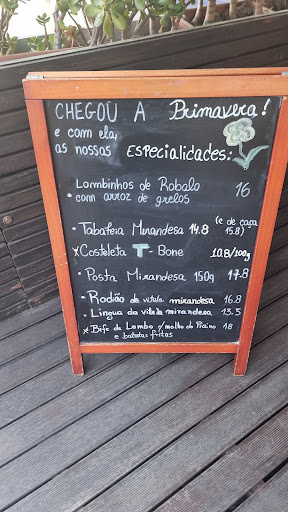 CHEGOU A Primavera!
e com ela,
as nossas ESPECIALIDADES:
• Lombinhos de Robalo 16
• com arroz de grelos
• Tabafeia Mirandesa 14.8 (e de caça 15.8)
x Costeleta T-Bone 10.8/100g
• Posta Mirandesa 150g 17.8
• Rodião de vitela mirandesa 16.8
• Lingua da vitela mirandesa 13.5
x Bife do Lombo c/molho do 18
e batatas fritas